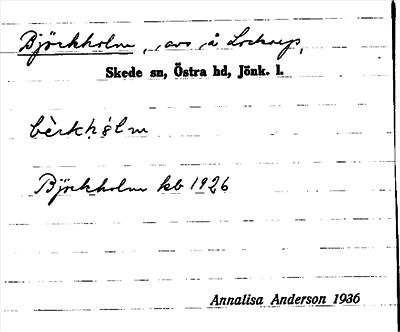 Björkholm, avs å Lockarp,
Skede sn, Östra hd, Jönk. l.
bèrkhòlm
Björkholm kb 1926
Annalisa Anderson 1936